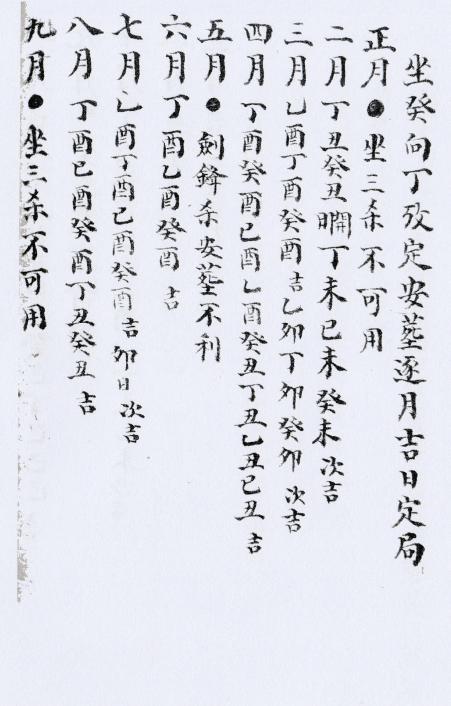 坐癸向丁攷定安塟逐月吉日定局
正月●坐三杀不可用
二月丁丑癸丑開丁未已未癸未次吉
三月乙酉丁酉癸酉吉乙卯丁卯癸卯次吉
四月丁酉癸酉已酉乙酉癸丑丁丑乙丑已丑吉
五月●劍鋒杀安塟不利
六月丁酉乙酉癸酉吉
七月乙酉丁酉已酉癸酉吉卯日次吉
八月丁酉已酉癸酉丁丑癸丑吉
九月●坐三杀不可用